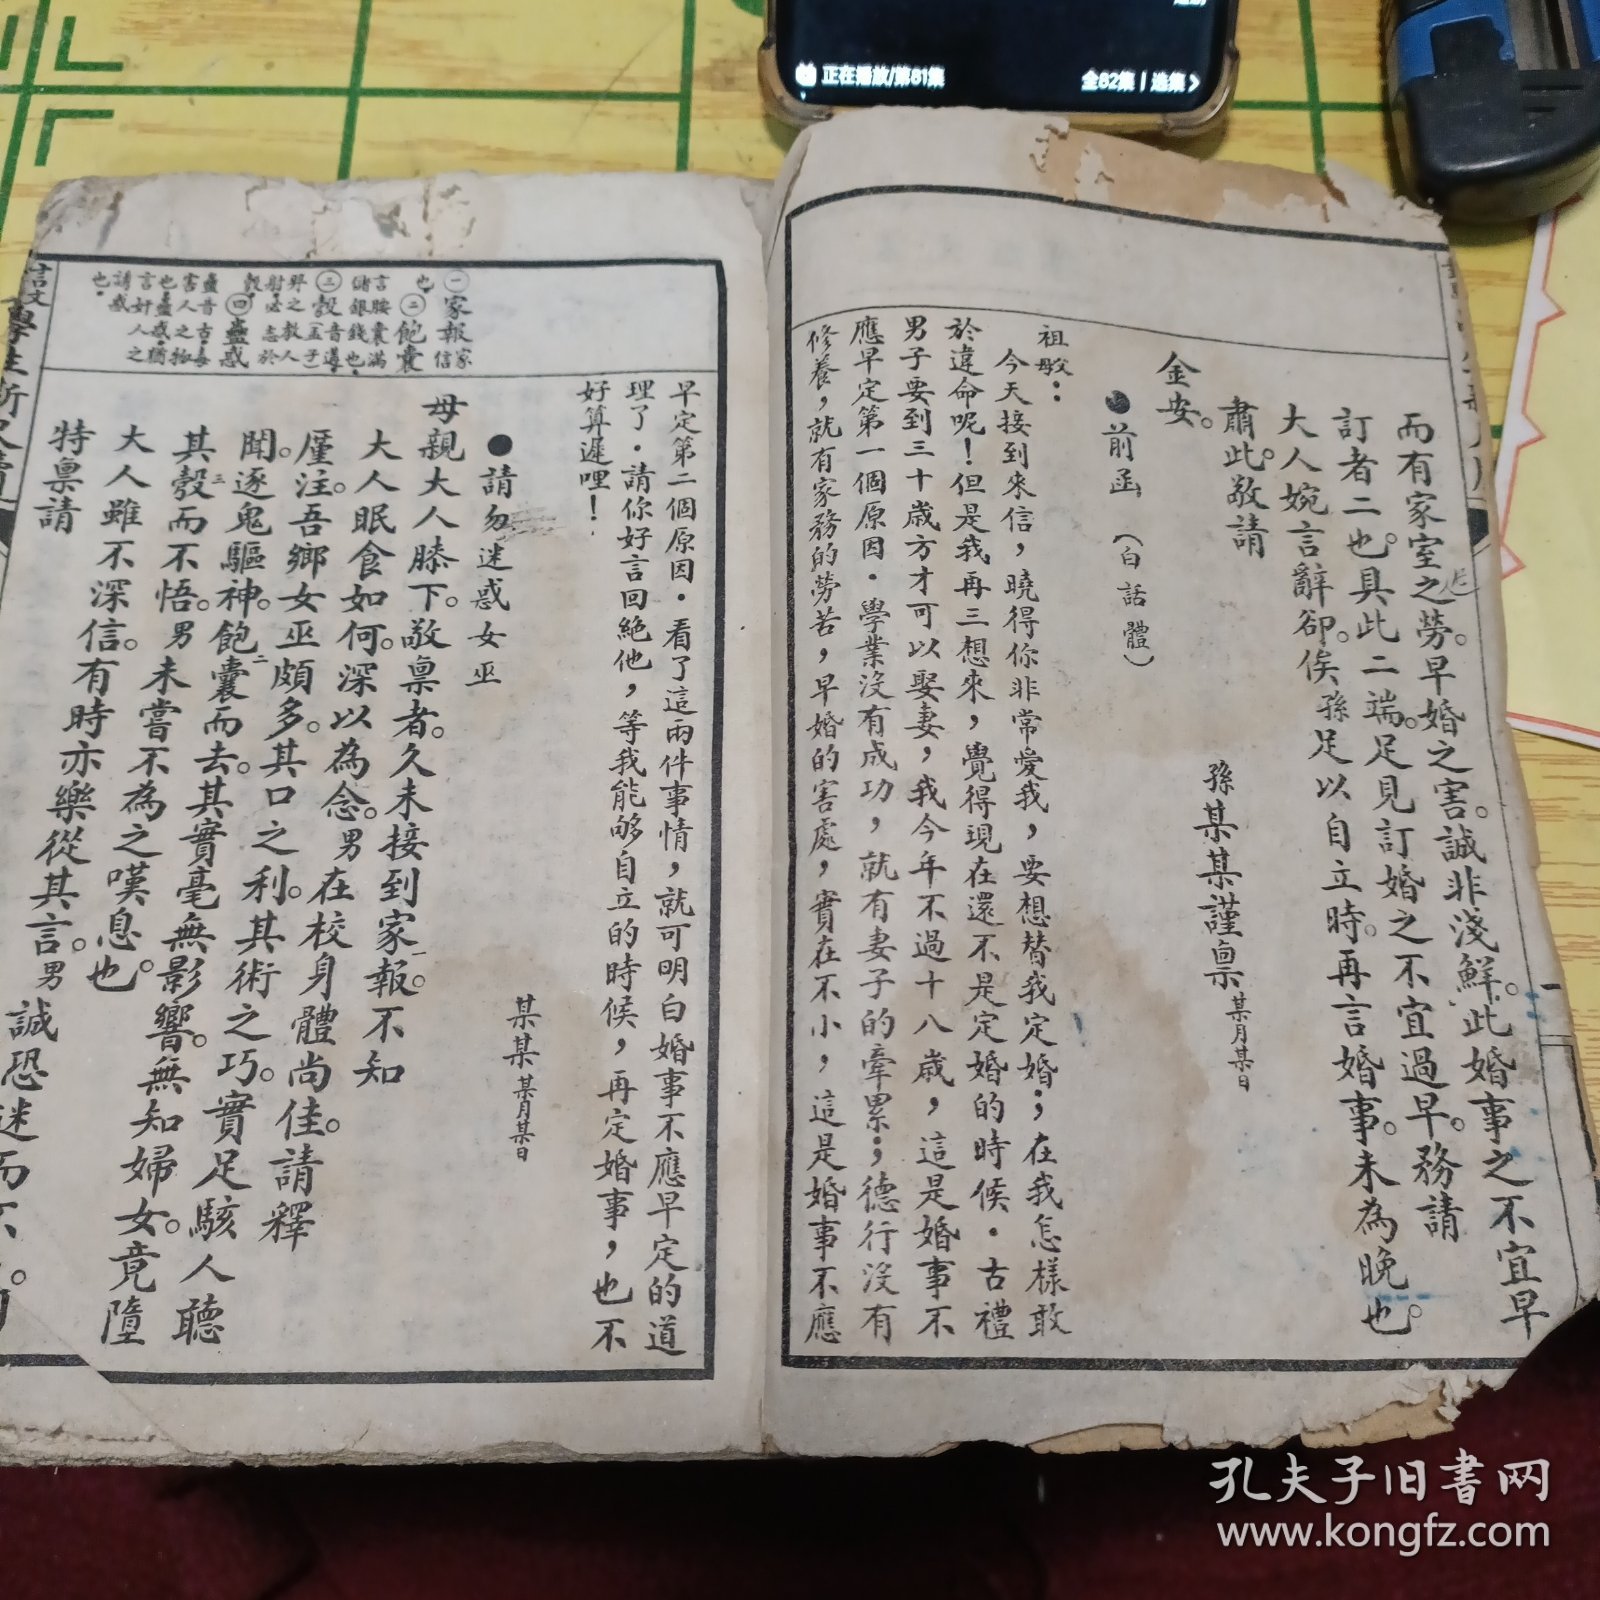 正在播放/第81集
全82集 | 选集 >
而有家室之勞。早婚之害。誠非淺鮮。此婚事之不宜早
訂者二也。具此二端。足見訂婚之不宜過早。務請
大人婉言辭卻。俟孫足以自立時。再言婚事。未為晚也。
肅此。敬請
金安。
孫某某謹稟某月某日
●前函(白話體)
祖母:
今天接到來信,曉得你非常愛我,要想替我定婚;在我怎樣敢
於違命呢!但是我再三想來,覺得現在還不是定婚的時候.古禮
男子要到三十歲方才可以娶妻,我今年不過十八歲,這是婚事不
應早定第一個原因.學業沒有成功,就有妻子的牽累;德行沒有
修養,就有家務的勞苦,早婚的害處,實在不小,這是婚事不應
早定第二個原因.看了這兩件事情,就可明白婚事不應早定的道
理了.請你好言回絕他,等我能够自立的時候,再定婚事,也不
好算遲哩!
某某某月某日
●請勿迷惑女巫
母親大人膝下。敬稟者。久未接到家報。不知
大人眠食如何。深以為念。男在校身體尚佳。請釋
厪注。吾鄉女巫頗多。其口之利。其術之巧。實足駭人聽
聞。逐鬼驅神。飽囊而去。其實毫無影響。無知婦女。竟墮
其彀而不悟。男未嘗不為之嘆息也。
大人雖不深信。有時亦樂從其言。男誠恐迷而不
特稟請
㊀家報家信
也。㊁飽囊
言腰囊滿
儲銀錢也。
㊂彀音遘
羿之教人
射必志於
彀。㊃蠱惑
蠱音古毒
害人之物
也。蠱惑猶
言奸人之
請惑
也。
孔夫子旧书网
www.kongfz.com